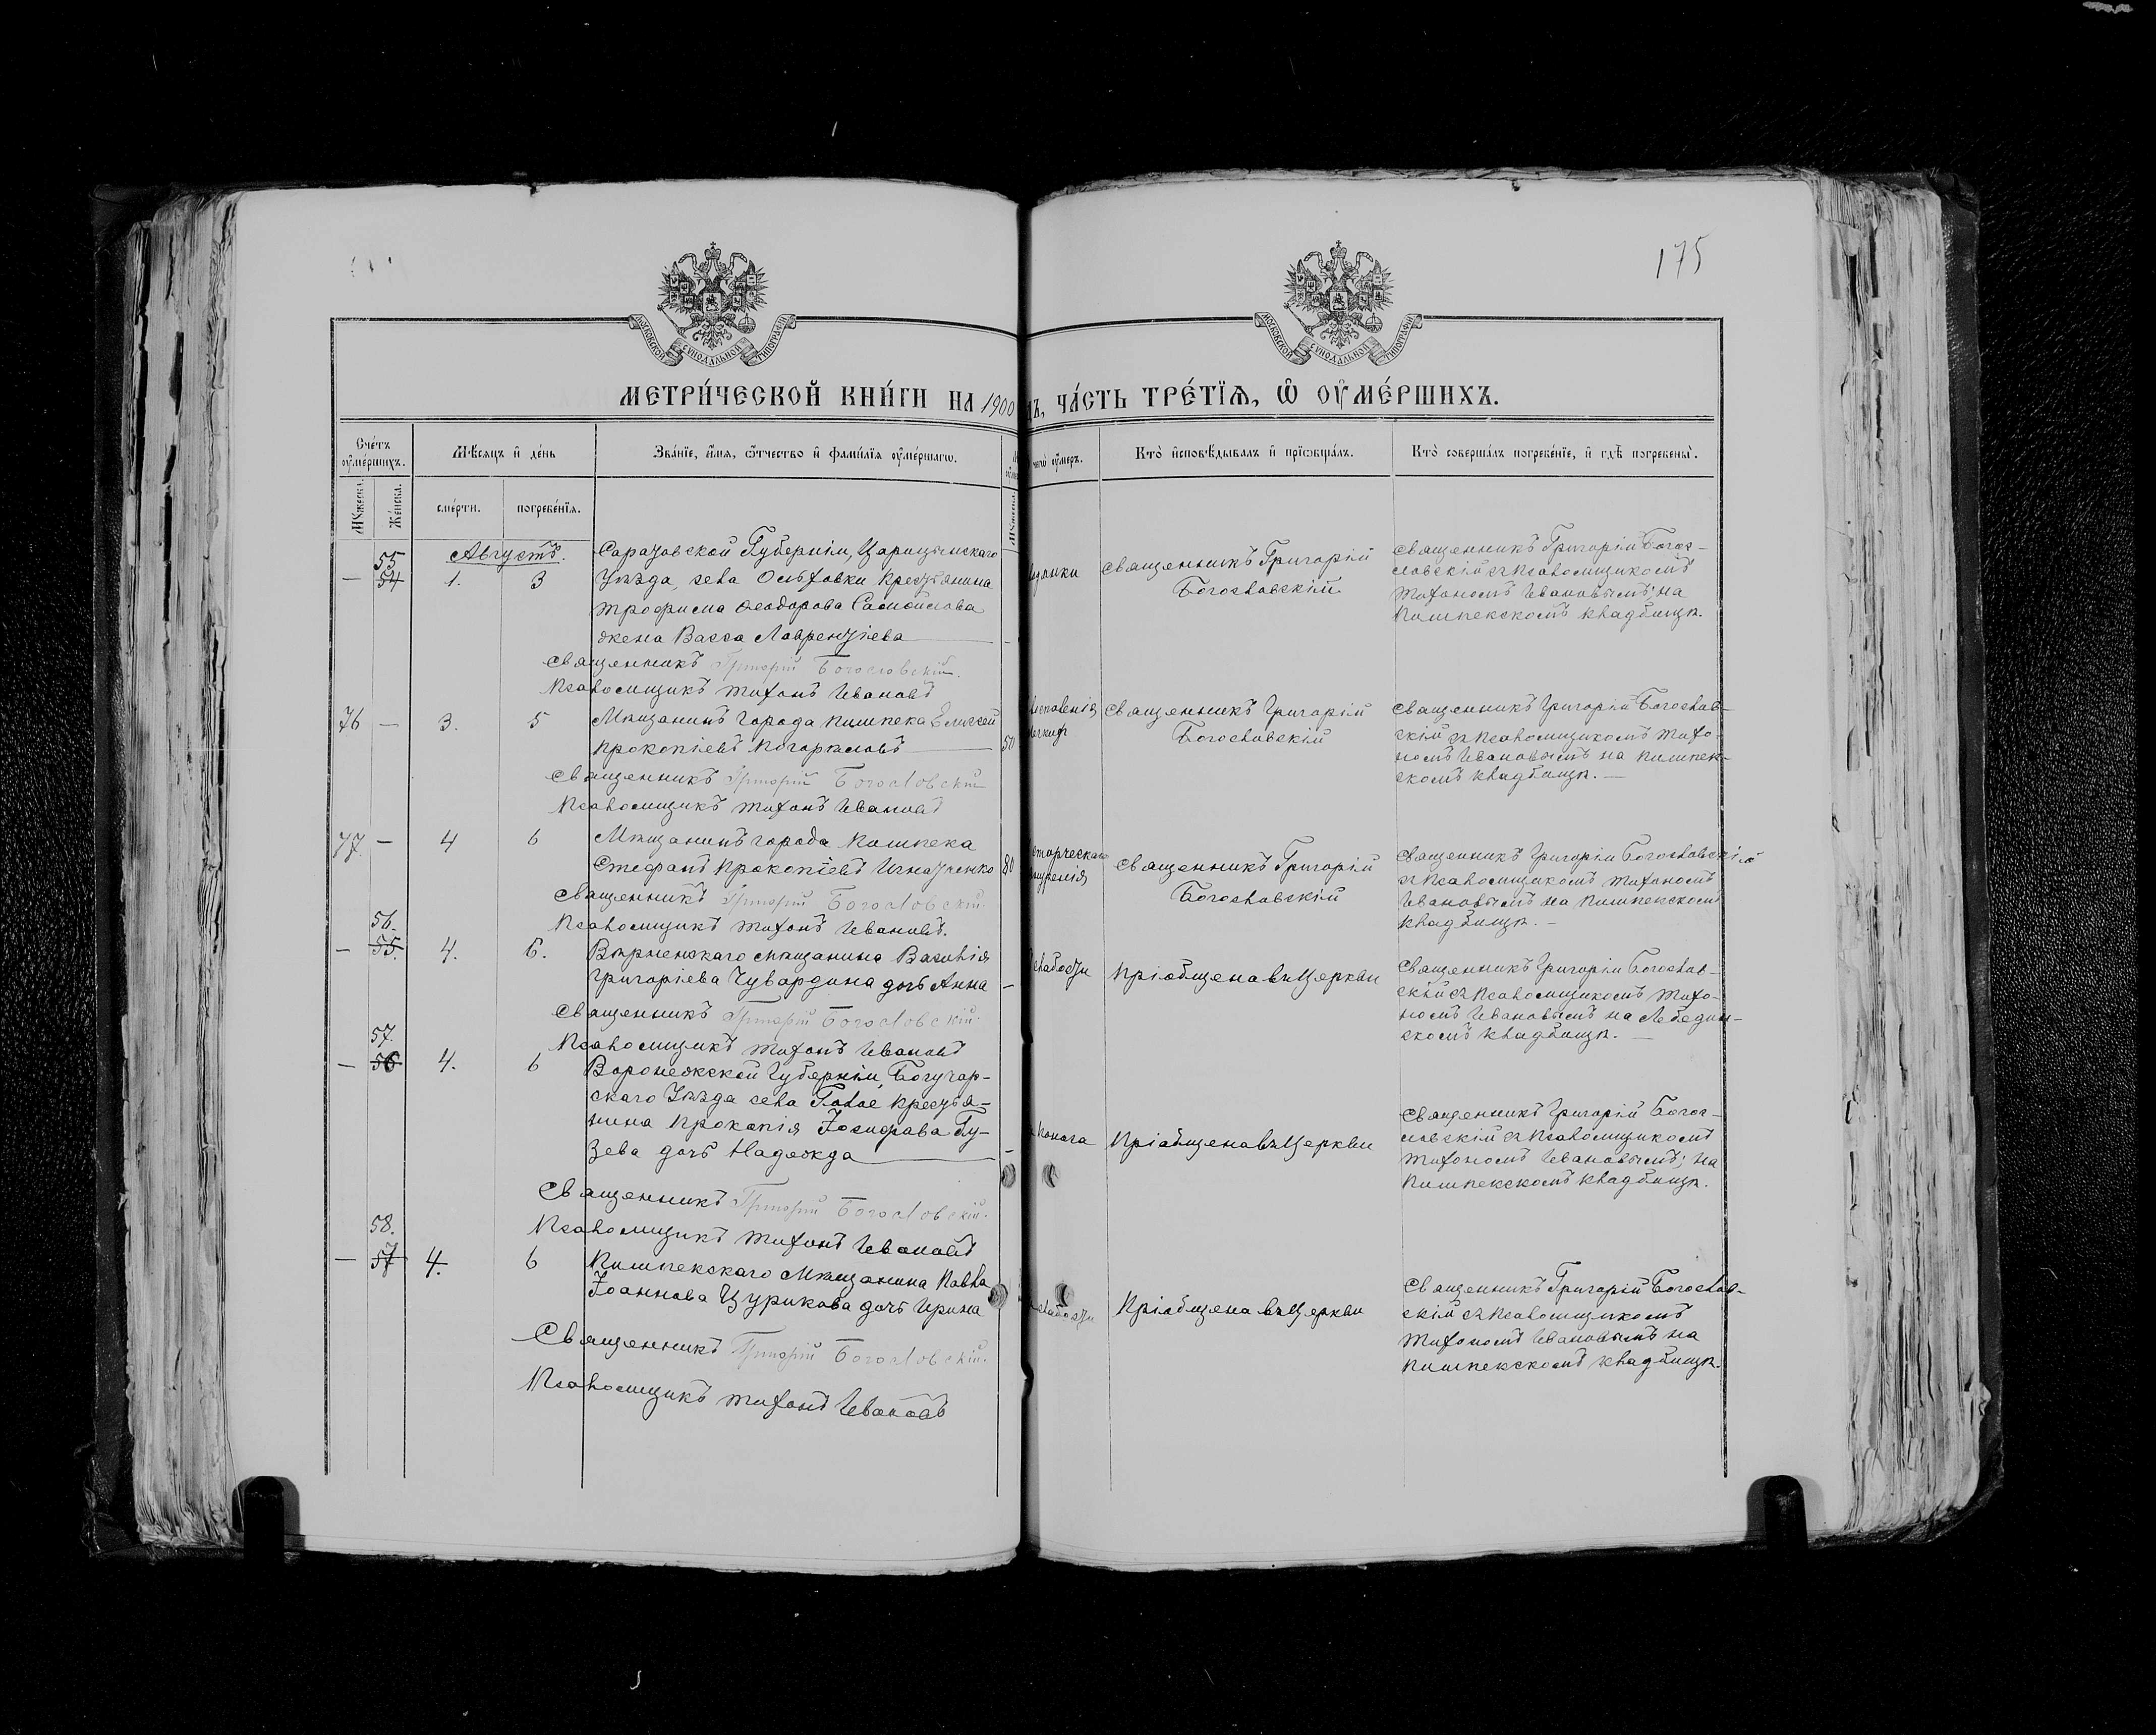 175
МОСКОВСКОЙ СѴНОДАЛЬНОЙ ТИПОГРАФІИ
МОСКОВСКОЙ СѴНОДАЛЬНОЙ ТИПОГРАФІИ
МЕТРИ́ЧЕСКОЙ КНИ́ГИ НА 1900
ЧА́СТЬ ТРЕ́ТІѦ, Ѽ ОУ҆МЕ́РШИХЪ.
Сче́тъ оу҆ме́ршихъ.
Мꙋ́жеска.
Же́нска.
Мѣ́сѧцъ и҆ де́нь
сме́рти.
погребе́нїѧ.
Зва́нїе, и҆́мѧ, ѻ҆́тчество и҆ фами́лїѧ оу҆ме́ршагѡ.
Мꙋ́жеска.
чегѡ̀ оу҆́меръ.
Кто̀ и҆сповѣ́дывалъ и҆ прїѡбща́лъ.
Кто̀ соверша́лъ погребе́нїе, и҆ гдѣ̀ погребены̀.
Августъ.
55
— 54 1. 3
Саратовской Губерніи, Царицынскаго
Уѣзда, села Ольховки крестьянина
Трофима Феодорова Самойлова
жена Васса Лаврентіева —
Священникъ Григорій Богословскій.
Псаломщикъ Тихонъ Ивановъ
Священникъ Григорій
Богословскій.
Священникъ Григорій Богос-
ловскій съ Псаломщикомъ
Тихономъ Ивановымъ; на
Пишпекскомъ кладбищѣ.
76 — 3. 5
Мѣщанинъ города Пишпека Елисей
Прокопіевъ Погорѣловъ — 50
Священникъ Григорій Богословскій
Псаломщикъ Тихонъ Ивановъ
Священникъ Григорій
Богословскій
Священникъ Григорій Богослов-
скій съ Псаломщикомъ Тихо-
номъ Ивановымъ на Пишпек-
скомъ кладбищѣ. —
77 — 4 6
Мѣщанинъ города Пишпека
Стефанъ Прокопіевъ Игнатенко 80
Священникъ Григорій Богословскій.
Псаломщикъ Тихонъ Ивановъ.
Священникъ Григорій
Богословскій
Священникъ Григорій Богословскій
съ Псаломщикомъ Тихономъ
Ивановымъ на Пишпекскомъ
кладбищѣ. —
56.
— 55. 4. 6.
Вѣрненскаго мѣщанина Василія
Григоріева Чувардина дочь Анна —
Священникъ Григорій Богословскій.
Псаломщикъ Тихонъ Ивановъ
слабости
Пріобщена въ Церкви
Священникъ Григорій Богослов-
скій съ Псаломщикомъ Тихо-
номъ Ивановымъ на Лебедин-
скомъ кладбищѣ. —
57.
— 56 4. 6
Воронежской Губерніи, Богучар-
скаго Уѣзда села Голое крестья-
нина Прокопія Іосифова Гу-
зева дочь Надежда —
Священникъ Григорій Богословскій.
Псаломщикъ Тихонъ Ивановъ
поноса
Пріобщена въ Церкви
Священникъ Григорій Богос-
ловскій съ Псаломщикомъ
Тихономъ Ивановымъ; на
Пишпекскомъ кладбищѣ.
58.
— 57 4. 6
Пишпекскаго Мѣщанина Павла
Іоаннова Цурикова дочь Ирина
Священникъ Григорій Богословскій.
Псаломщикъ Тихонъ Ивановъ
слабости
Пріобщена въ Церкви
Священникъ Григорій Богослов-
скій съ Псаломщикомъ
Тихономъ Ивановымъ на
Пишпекскомъ кладбищѣ.